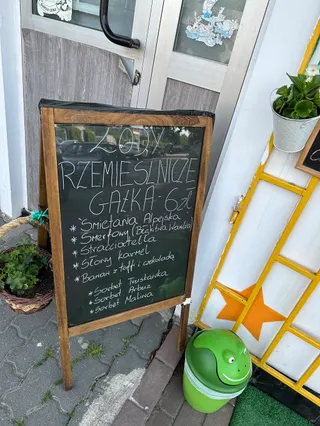 LODY
RZEMIEŚLNICZE
GAŁKA · 6 zł
* Śmietanka Alpejska
* Smerfowy (Błękitna Wanilia)
* Stracciatella
* Słony karmel
* Banan z toffi i czekoladą
* Sorbet Truskawka
* Sorbet Arbuz
* Sorbet Malina